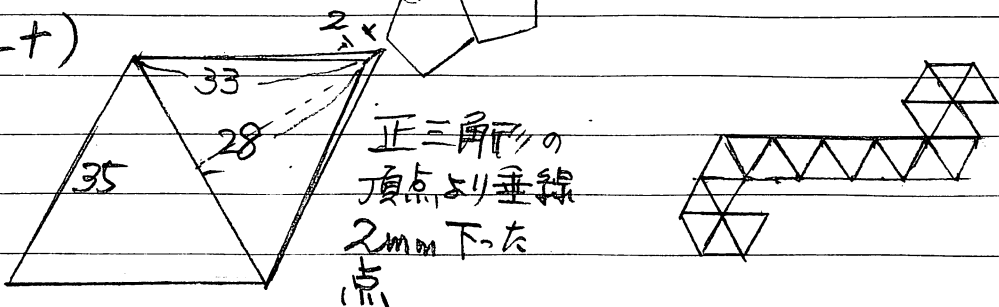 ート)
2
33
28
35
正三角形の
頂点より垂線
2mm下った
点